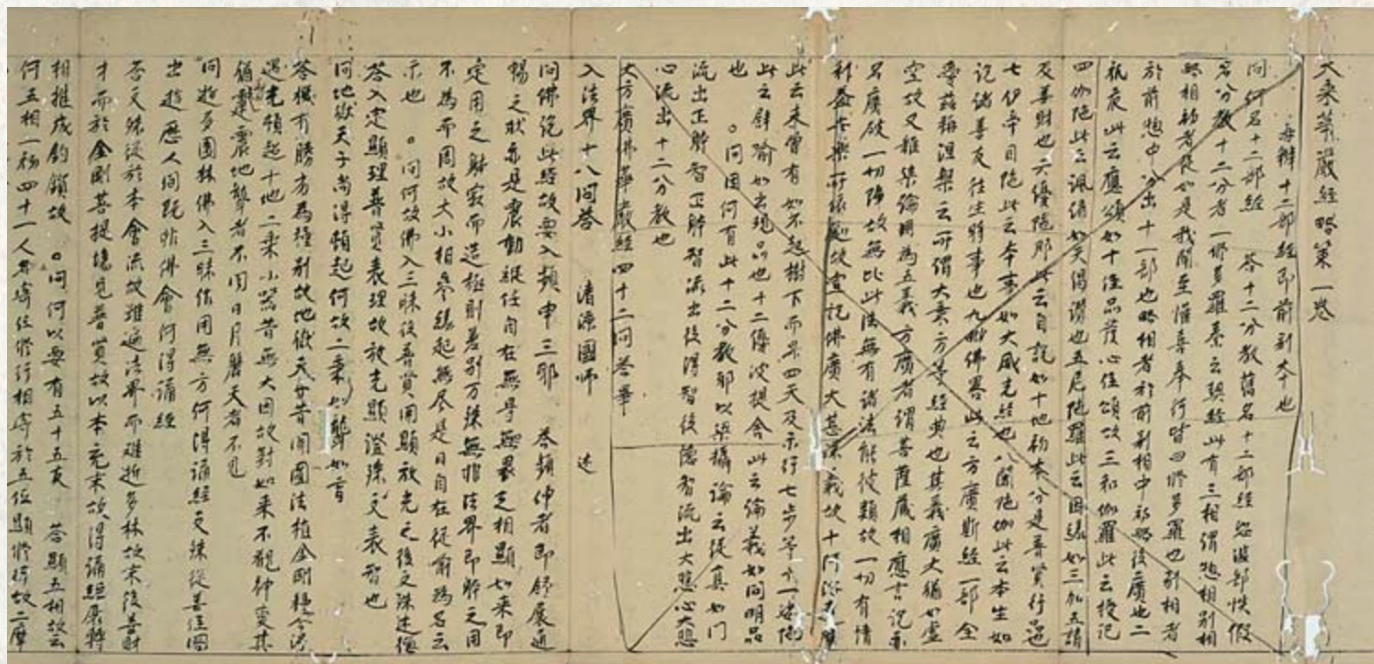 大乘華嚴經略策一卷
每辯十二部經即前別本也
問何名十二部經 答十二分教舊名十二部經恐濫部帙假
名分教十二分者一修多羅秦云契經此有三相謂惣相別相
略相初者從如是我聞至懽喜奉行皆曰修多羅也別相者
於前惣中分出十一部也略相者於前別相中初略後廣也二
祇夜此云應頌如十住品發心住頌故三和伽羅此云授記
四伽陀此云諷誦如天偈讚也五尼陀羅此云因緣如三加五請
及善財也六優陀那此云自說如十地初本分是普賢行品
七伊帝目陀此云本事如大威光經也八闍陀伽此云本生如
說諸善友往生時事也九毗佛略此云方廣斯經一部全
受茲稱涅槃云所謂大乘方等經典也其義廣大猶如虛
空故又雜集論明為五義方廣者謂菩薩藏相應言說亦
名廣破一切障故無比此法無有諸法能彼類故一切有情
利益安樂所依處故宣說佛廣大甚深義故十阿浮達磨
此云未曾有如不起樹下而昇四天及示行七步等十一婆陀
此云譬喻如出現品也十二優波提舍此云論義如問明品
也 。問因何有此十二分教耶以梁攝論云從真如門
流出正體智正體智流出後得智後德智流出大悲心大悲
心流出十二分教也
大方廣佛華嚴經四十二問答華
入法界十八問答 清涼國師 述
問佛說此經故要入頻申三耶 答頻伸者即舒展通
暢之狀亦是震動縱任自在無畏之相顯如來即
定用之體寂而造極則差別万殊無非法界即體之用
不為而周故大小相參緣起無尽是曰自在從喻為名云
示也 。問何故佛入三昧後普賢開顯放光之後文殊述德
答入定顯理普賢表理故放光顯證殊文表智也
問地獄天子尚得頓起何故二乘如聾如盲
答機有勝劣為種別故地獄天子昔聞圓法植金剛種今得
遇光頓起十地二乘小器昔無大因故對如來不覩神變其
猶䨓震地聾者不聞日月麗天者不見
問逝多園林佛入三昧借用無方何得誦經文殊從善住閣
出遊歷人間既非佛會何得誦經
答文殊從於本會流故雖遍法界而雖逝多林故末後善財
才而於金剛菩提境見普賢故以本充末故得誦經展轉
相推成鈎鎖故 。問何以要有五十五友 答顯五相故云
何五相一初四十一人名寄位修行相寄於五位顯修行故二摩